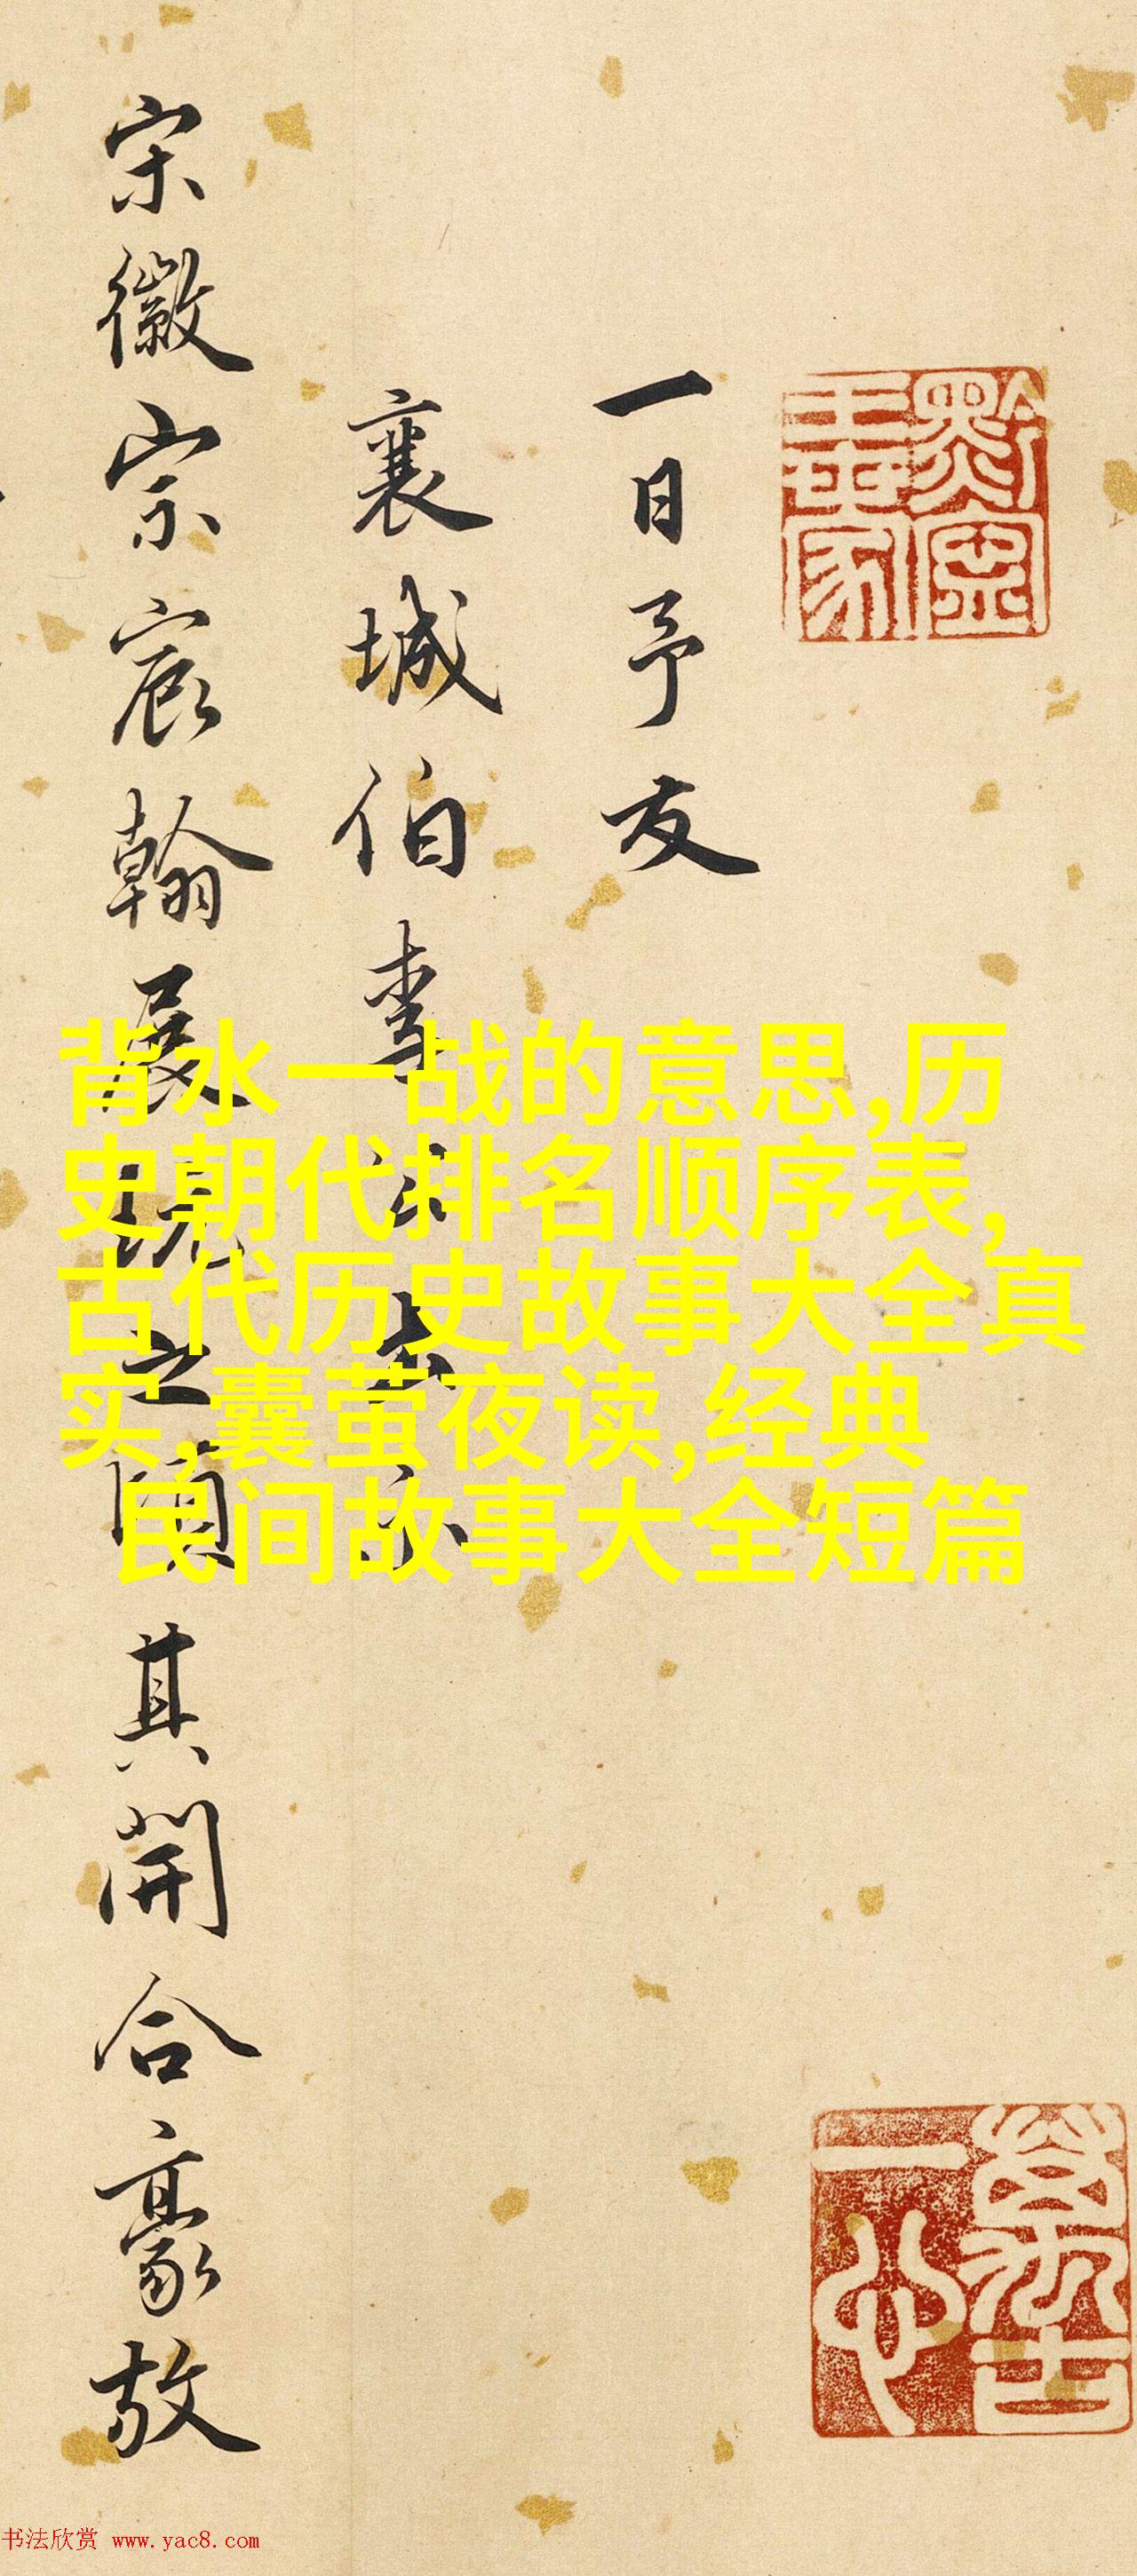 一日予友
襄城伯李
宋徽宗宸翰展
之
其開合豪放
背水一战的意思,历
史朝代排名顺序表,
古代历史故事大全真
实,囊萤夜读,经典
民间故事大全短篇
萬古
一心
书法欣赏 www.yac8.com